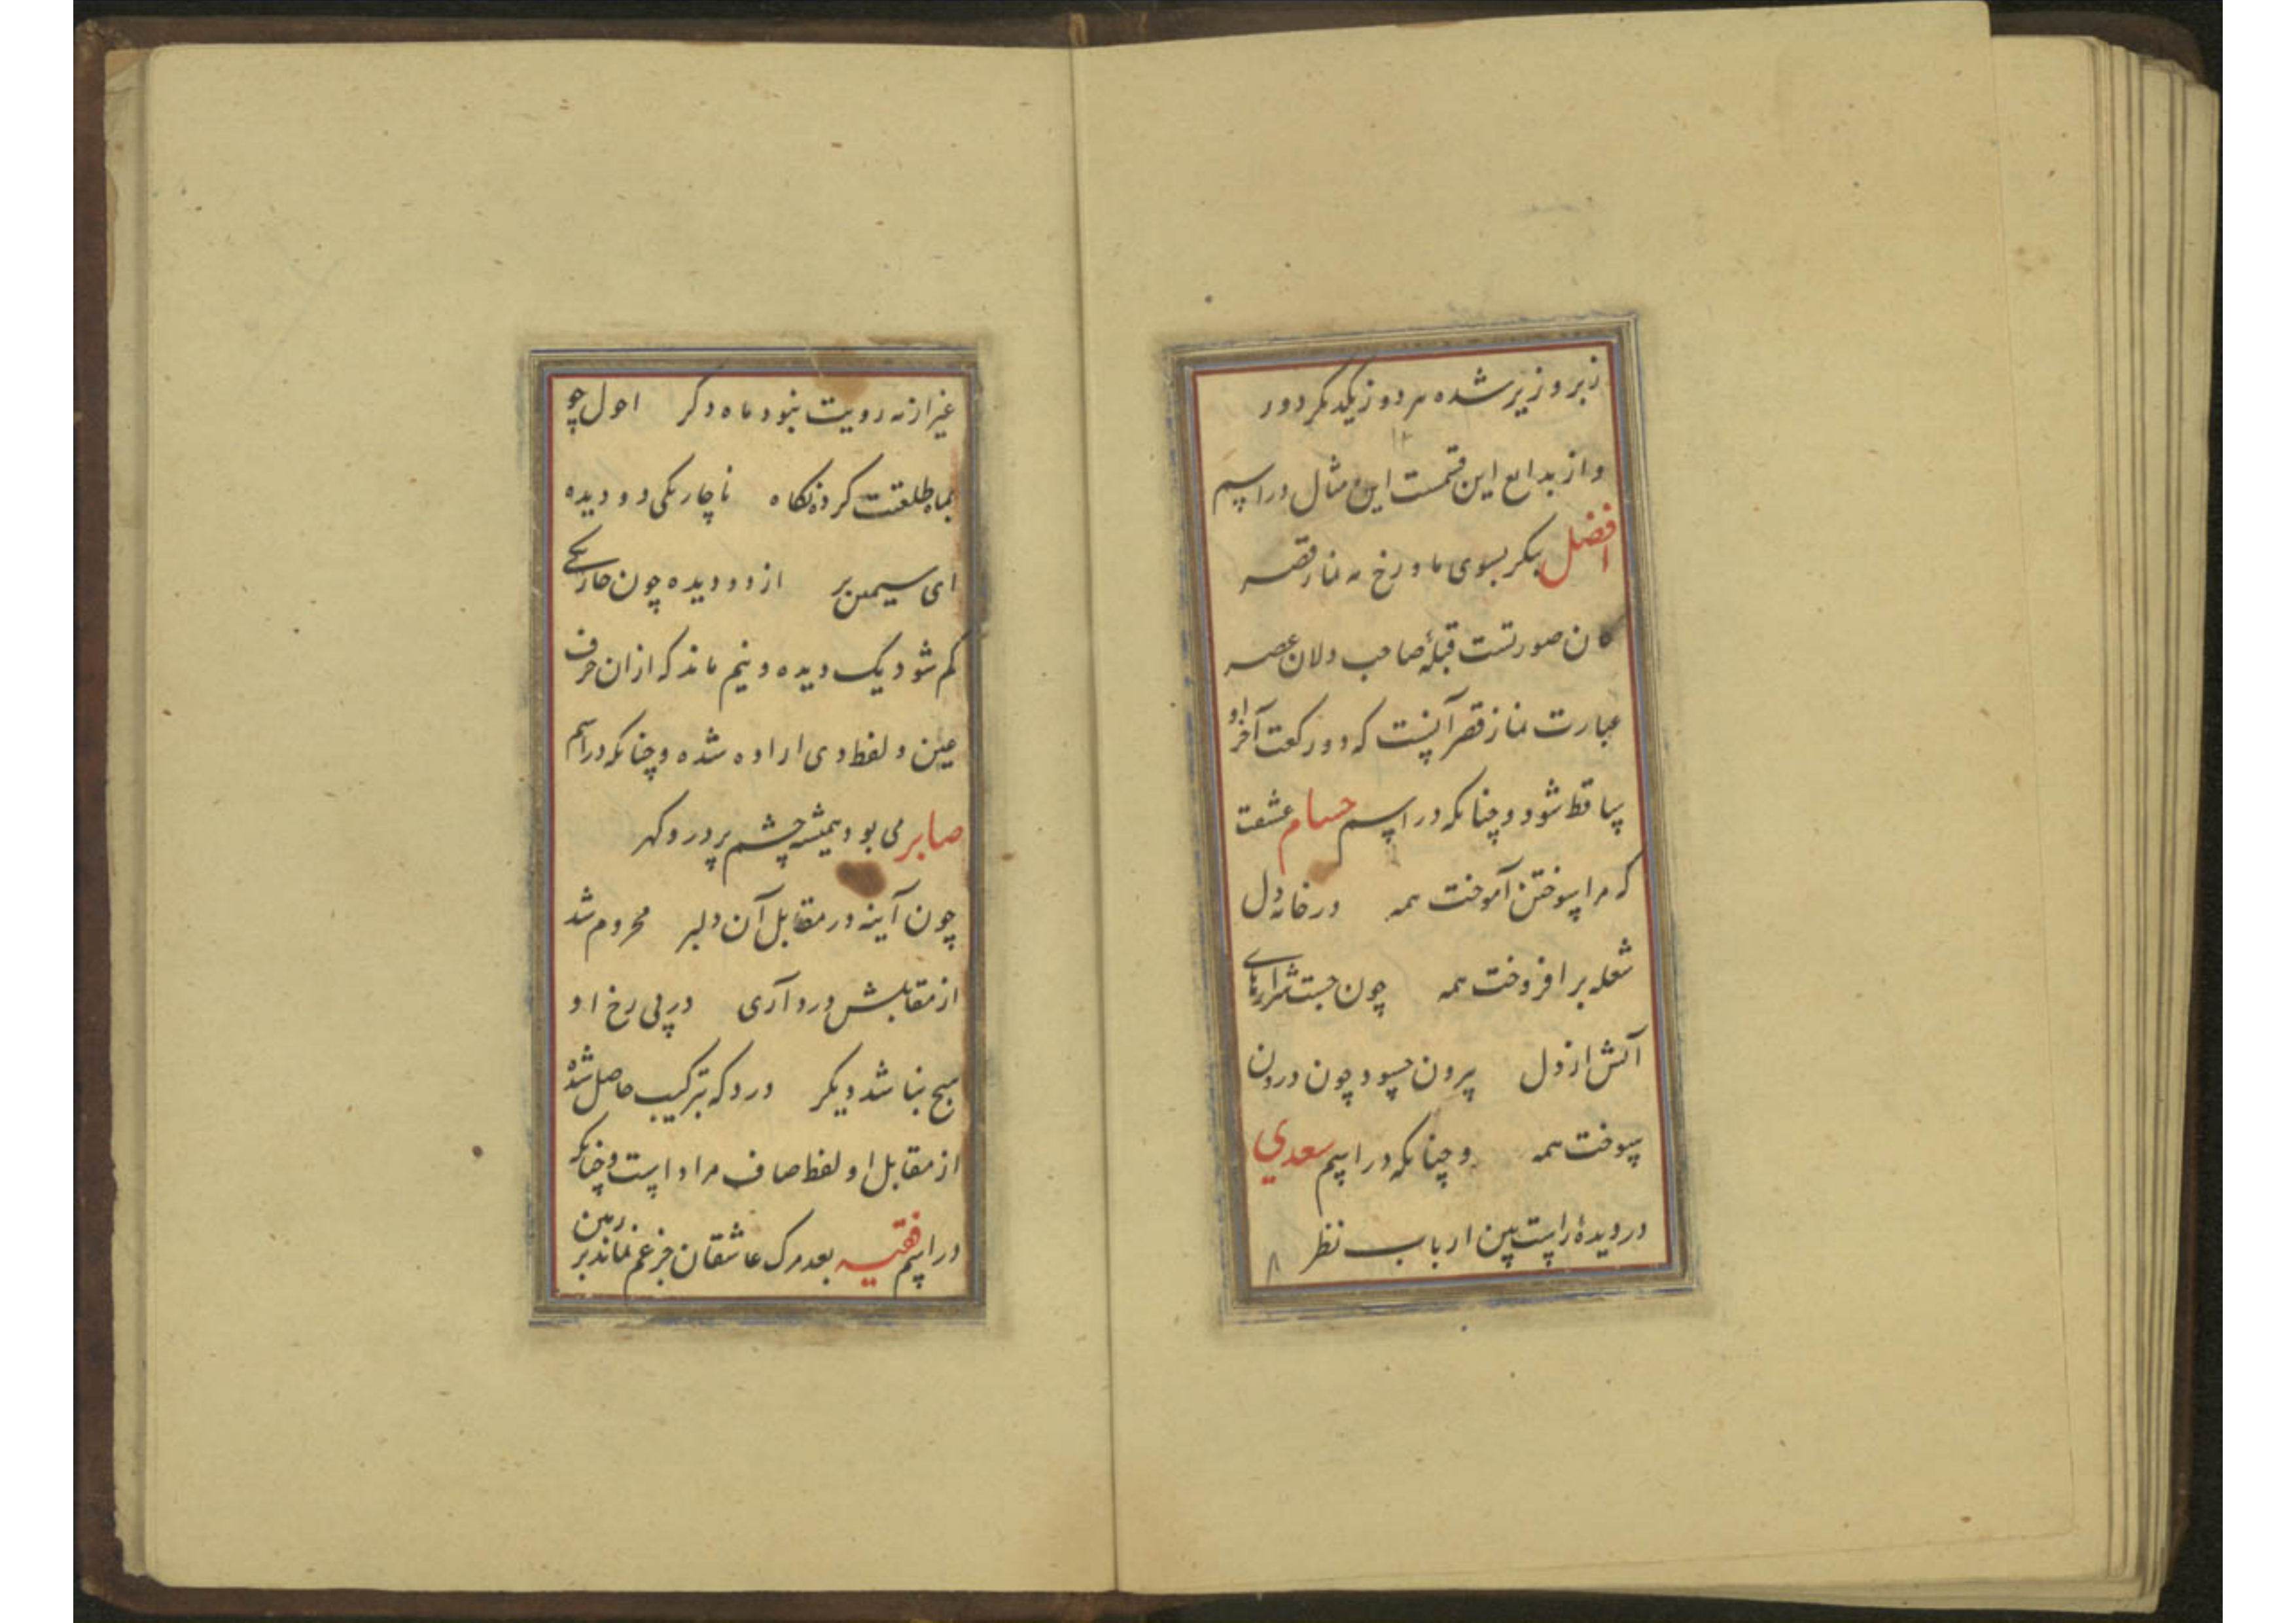 زبر و زیر شده هر دو ز یکدیگر دور
۱۲
و از بدایع این قسمست این مثال در اسم
افضل بنگر بسوی ماه رخ مه نماز قصر
کان صورتست قبلهٔ صاحب دلان عصر
عبارت نماز قصر آنست که دو رکعت آخر او
ساقط شود و چنانکه در اسم حسام عشقت
که مرا سوختن آموخت همه در خانه دل
شعله بر افروخت همه چون جست شرارهای
آتش از دل بیرون حسود چون درون
سوخت همه و چنانکه در اسم سعدی
در دیدهٔ راست بین ارباب نظر
۸
غیر از مه رویت نبود ماه دگر احول چو
بماه طلعتت کرد نگاه ناچار یکی دو دیده
ای سیمین بر از دو دیده چون چار یکی
کم شود یک دیده و نیم ماند که ازان حرف
عین و لفظ دی اراده شده و چنانکه در اسم
صابر می بود همیشه چشم پر در و گهر
چون آینه در مقابل آن دلبر محروم شد
از مقابلش درد آری در پی رخ او
هیچ نباشد دیگر درد که بترکیب حاصل شده
از مقابل او لفظ صاف مراد است و چنانکه
در اسم فقیه بعد مرک عاشقان جز غم نماند بر زمین